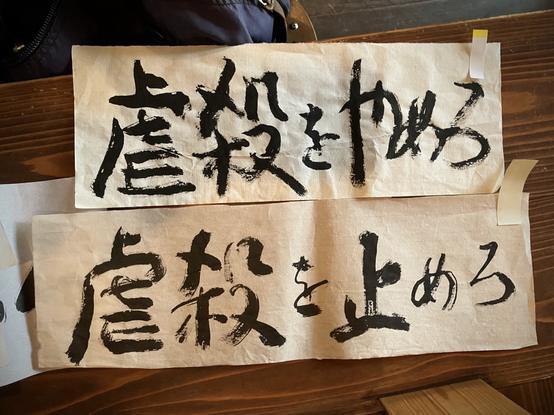 虐殺をやめろ
虐殺を止めろ